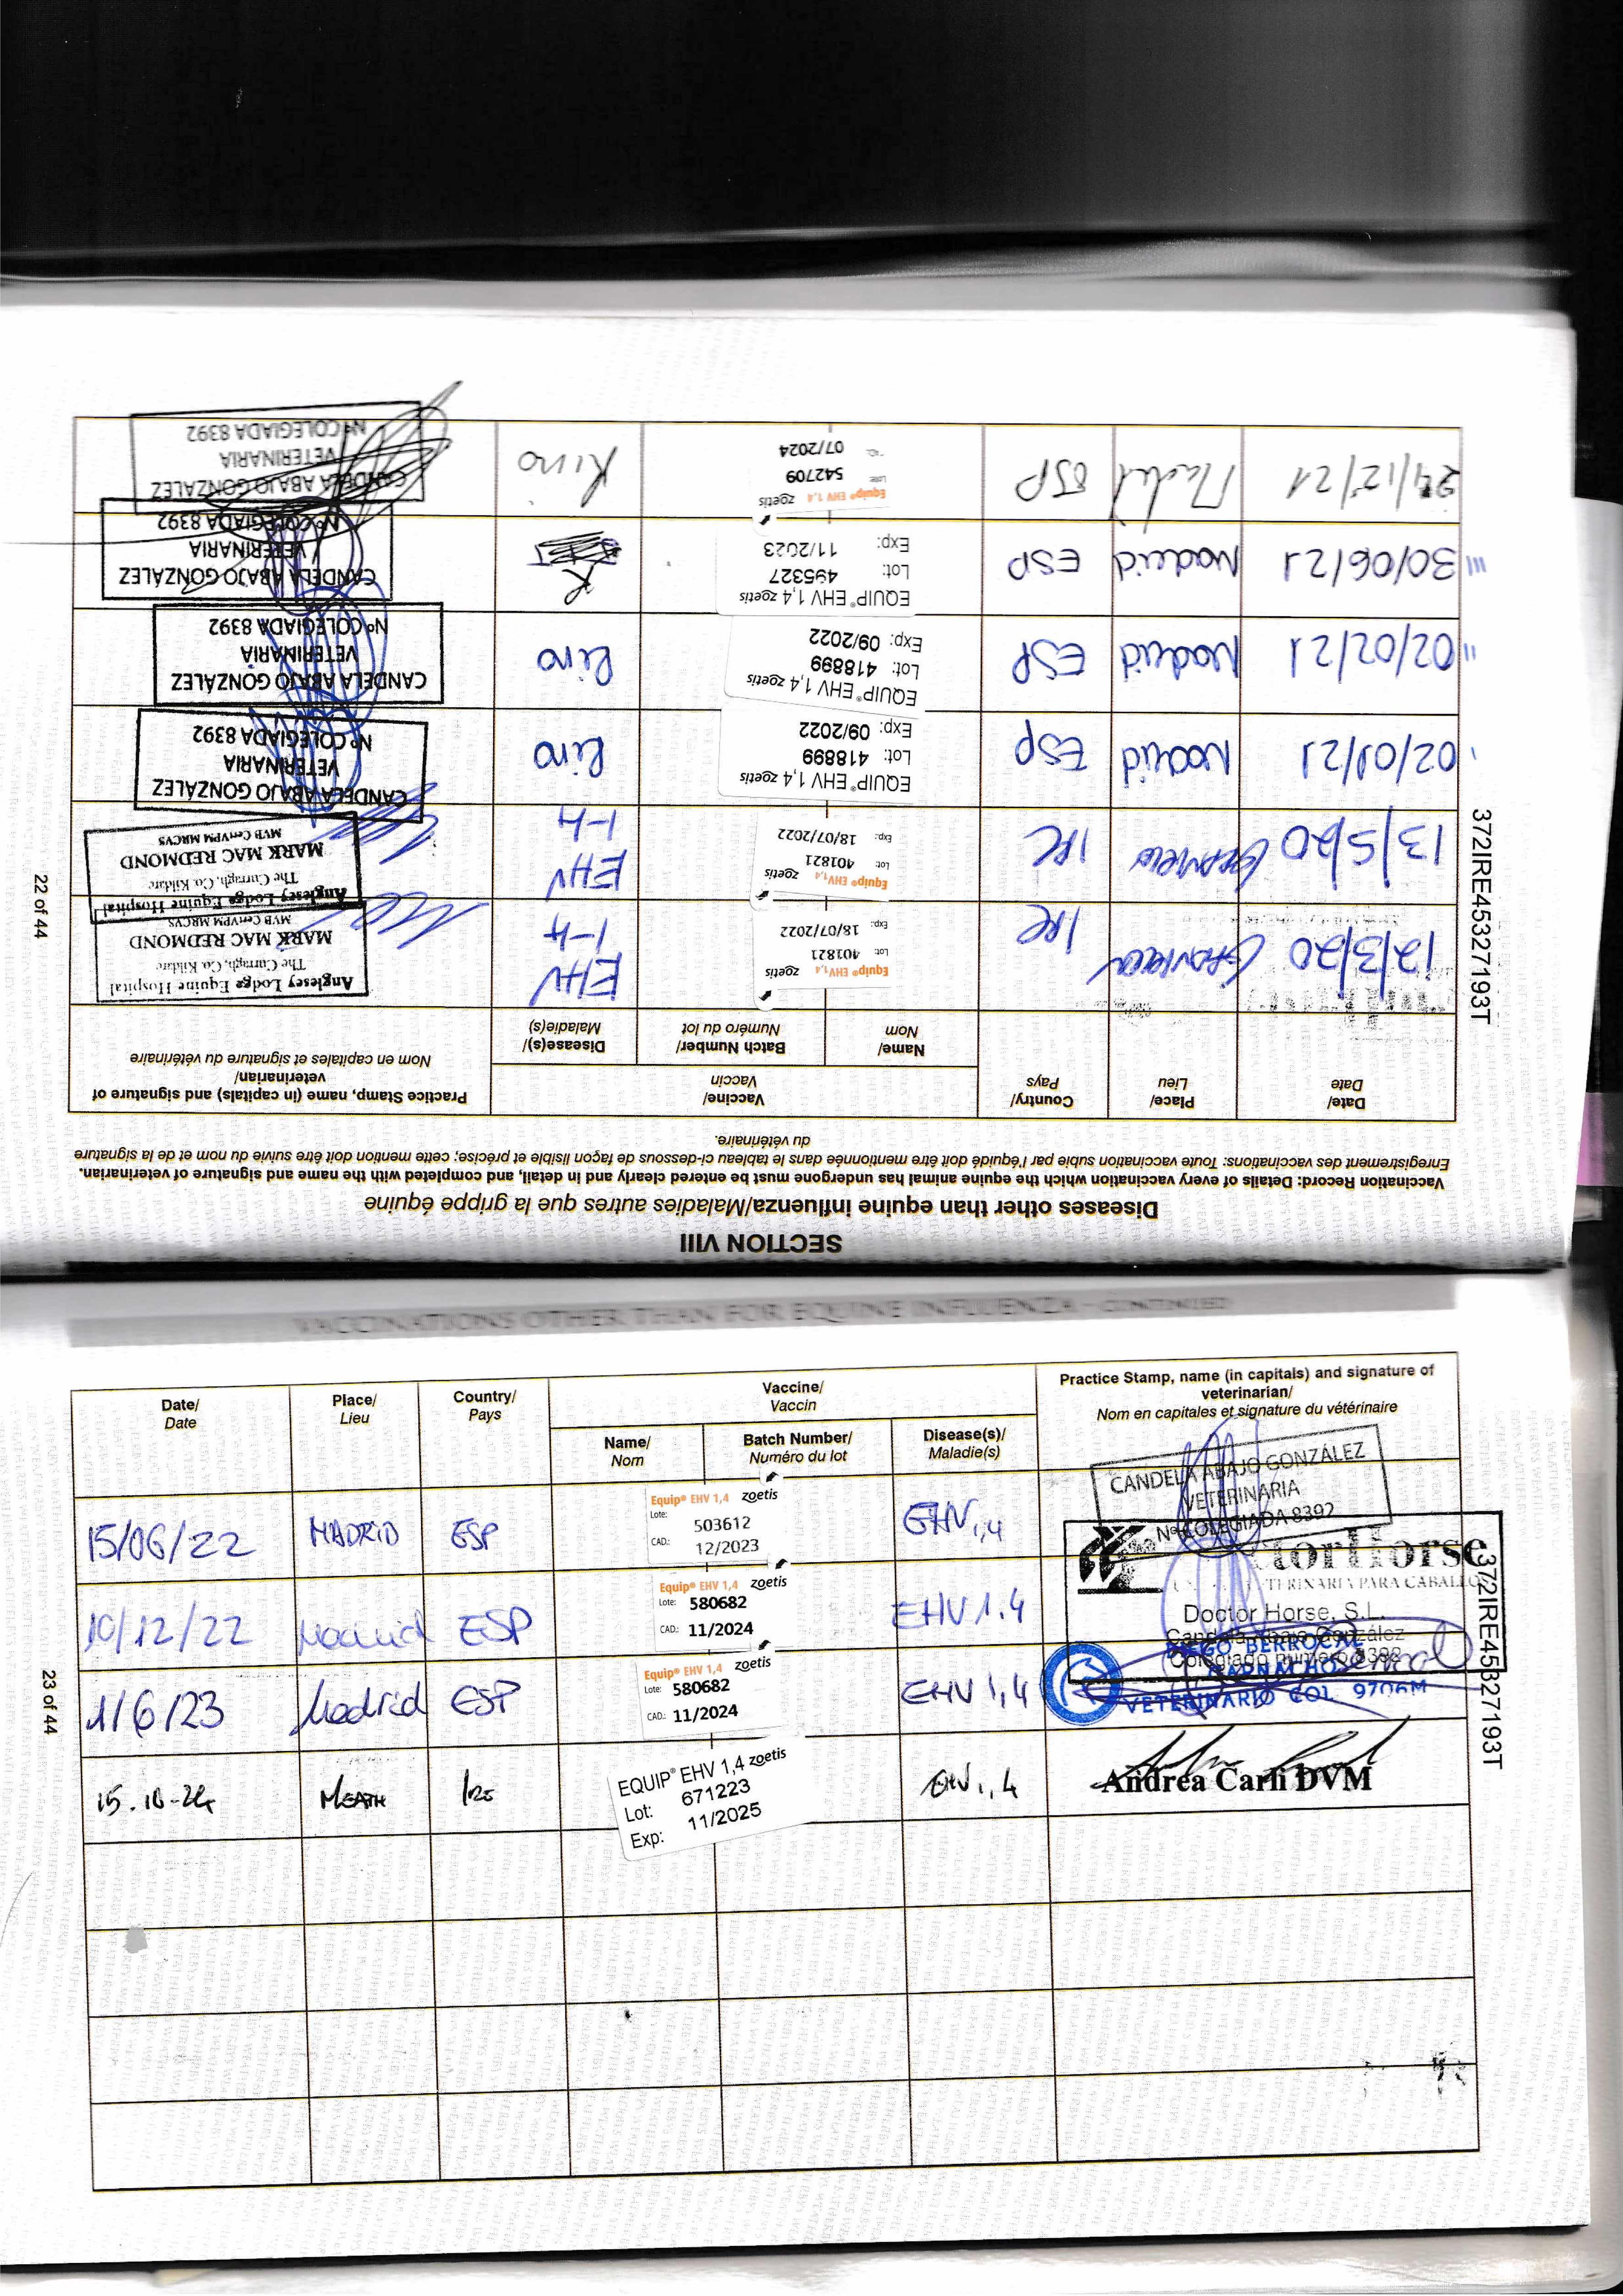 SECTION VIII
Diseases other than equine influenza/Maladies autres que la grippe équine
Vaccination Record: Details of every vaccination which the equine animal has undergone must be entered clearly and in detail, and completed with the name and signature of veterinarian.
Enregistrement des vaccinations: Toute vaccination subie par l'équidé doit être mentionnée dans le tableau ci-dessous de façon lisible et précise; cette mention doit être suivie du nom et de la signature
du vétérinaire.
Date/
Date
Place/
Lieu
Country/
Pays
Vaccine/
Vaccin
Name/
Nom
Batch Number/
Numéro du lot
Disease(s)/
Maladie(s)
Practice Stamp, name (in capitals) and signature of
veterinarian/
Nom en capitales et signature du vétérinaire
12/3/20
IRE
Equip® EHV 1,4 zoetis
Lot: 401821
Exp: 18/07/2022
EHV
1-4
Anglesey Lodge Equine Hospital
The Curragh, Co. Kildare
MARK MAC REDMOND
MVB CertVPM MRCVS
13/5/20
IRE
Equip® EHV 1,4 zoetis
Lot: 401821
Exp: 18/07/2022
EHV
1-4
Anglesey Lodge Equine Hospital
The Curragh, Co. Kildare
MARK MAC REDMOND
MVB CertVPM MRCVS
02/01/21 Madrid ESP
EQUIP® EHV 1,4 zoetis
Lot: 418899
Exp: 09/2022
Rino
CANDELA ABAJO GONZÁLEZ
VETERINARIA
Nº COLEGIADA 8392
02/02/21 Madrid ESP
EQUIP® EHV 1,4 zoetis
Lot: 418899
Exp: 09/2022
Rino
CANDELA ABAJO GONZÁLEZ
VETERINARIA
Nº COLEGIADA 8392
30/06/21 Madrid ESP
EQUIP® EHV 1,4 zoetis
Lot: 495327
Exp: 11/2023
R
CANDELA ABAJO GONZÁLEZ
VETERINARIA
Nº COLEGIADA 8392
/12/21 Madrid ESP
Equip® EHV 1,4 zoetis
Lote: 542709
CAD.: 07/2024
Rino
CANDELA ABAJO GONZÁLEZ
VETERINARIA
Nº COLEGIADA 8392
372IRE45327193T
22 of 44
VACCINATIONS OTHER THAN FOR EQUINE INFLUENZA - CONTINUED
Date/
Date
Place/
Lieu
Country/
Pays
Vaccine/
Vaccin
Name/
Nom
Batch Number/
Numéro du lot
Disease(s)/
Maladie(s)
Practice Stamp, name (in capitals) and signature of
veterinarian/
Nom en capitales et signature du vétérinaire
15/06/22 MADRID ESP
Equip® EHV 1,4 zoetis
Lote: 503612
CAD.: 12/2023
EHV1,4
CANDELA ABAJO GONZÁLEZ
VETERINARIA
Nº COLEGIADA 8392
10/12/22 Madrid ESP
Equip® EHV 1,4 zoetis
Lote: 580682
CAD.: 11/2024
EHV 1.4
VETERINARIA PARA CABALLOS
Doctor Horse, S.L.
Candela Abajo González
Colegiado número 8392
1/6/23 Madrid ESP
Equip® EHV 1,4 zoetis
Lote: 580682
CAD.: 11/2024
EHV 1,4
DIEGO BERROCAL
GARNACHO
VETERINARIO COL. 9706M
15.10-24 MEATH Ire
EQUIP® EHV 1,4 zoetis
Lot: 671223
Exp: 11/2025
EHV 1,4
Andrea Carli DVM
372IRE45327193T
23 of 44